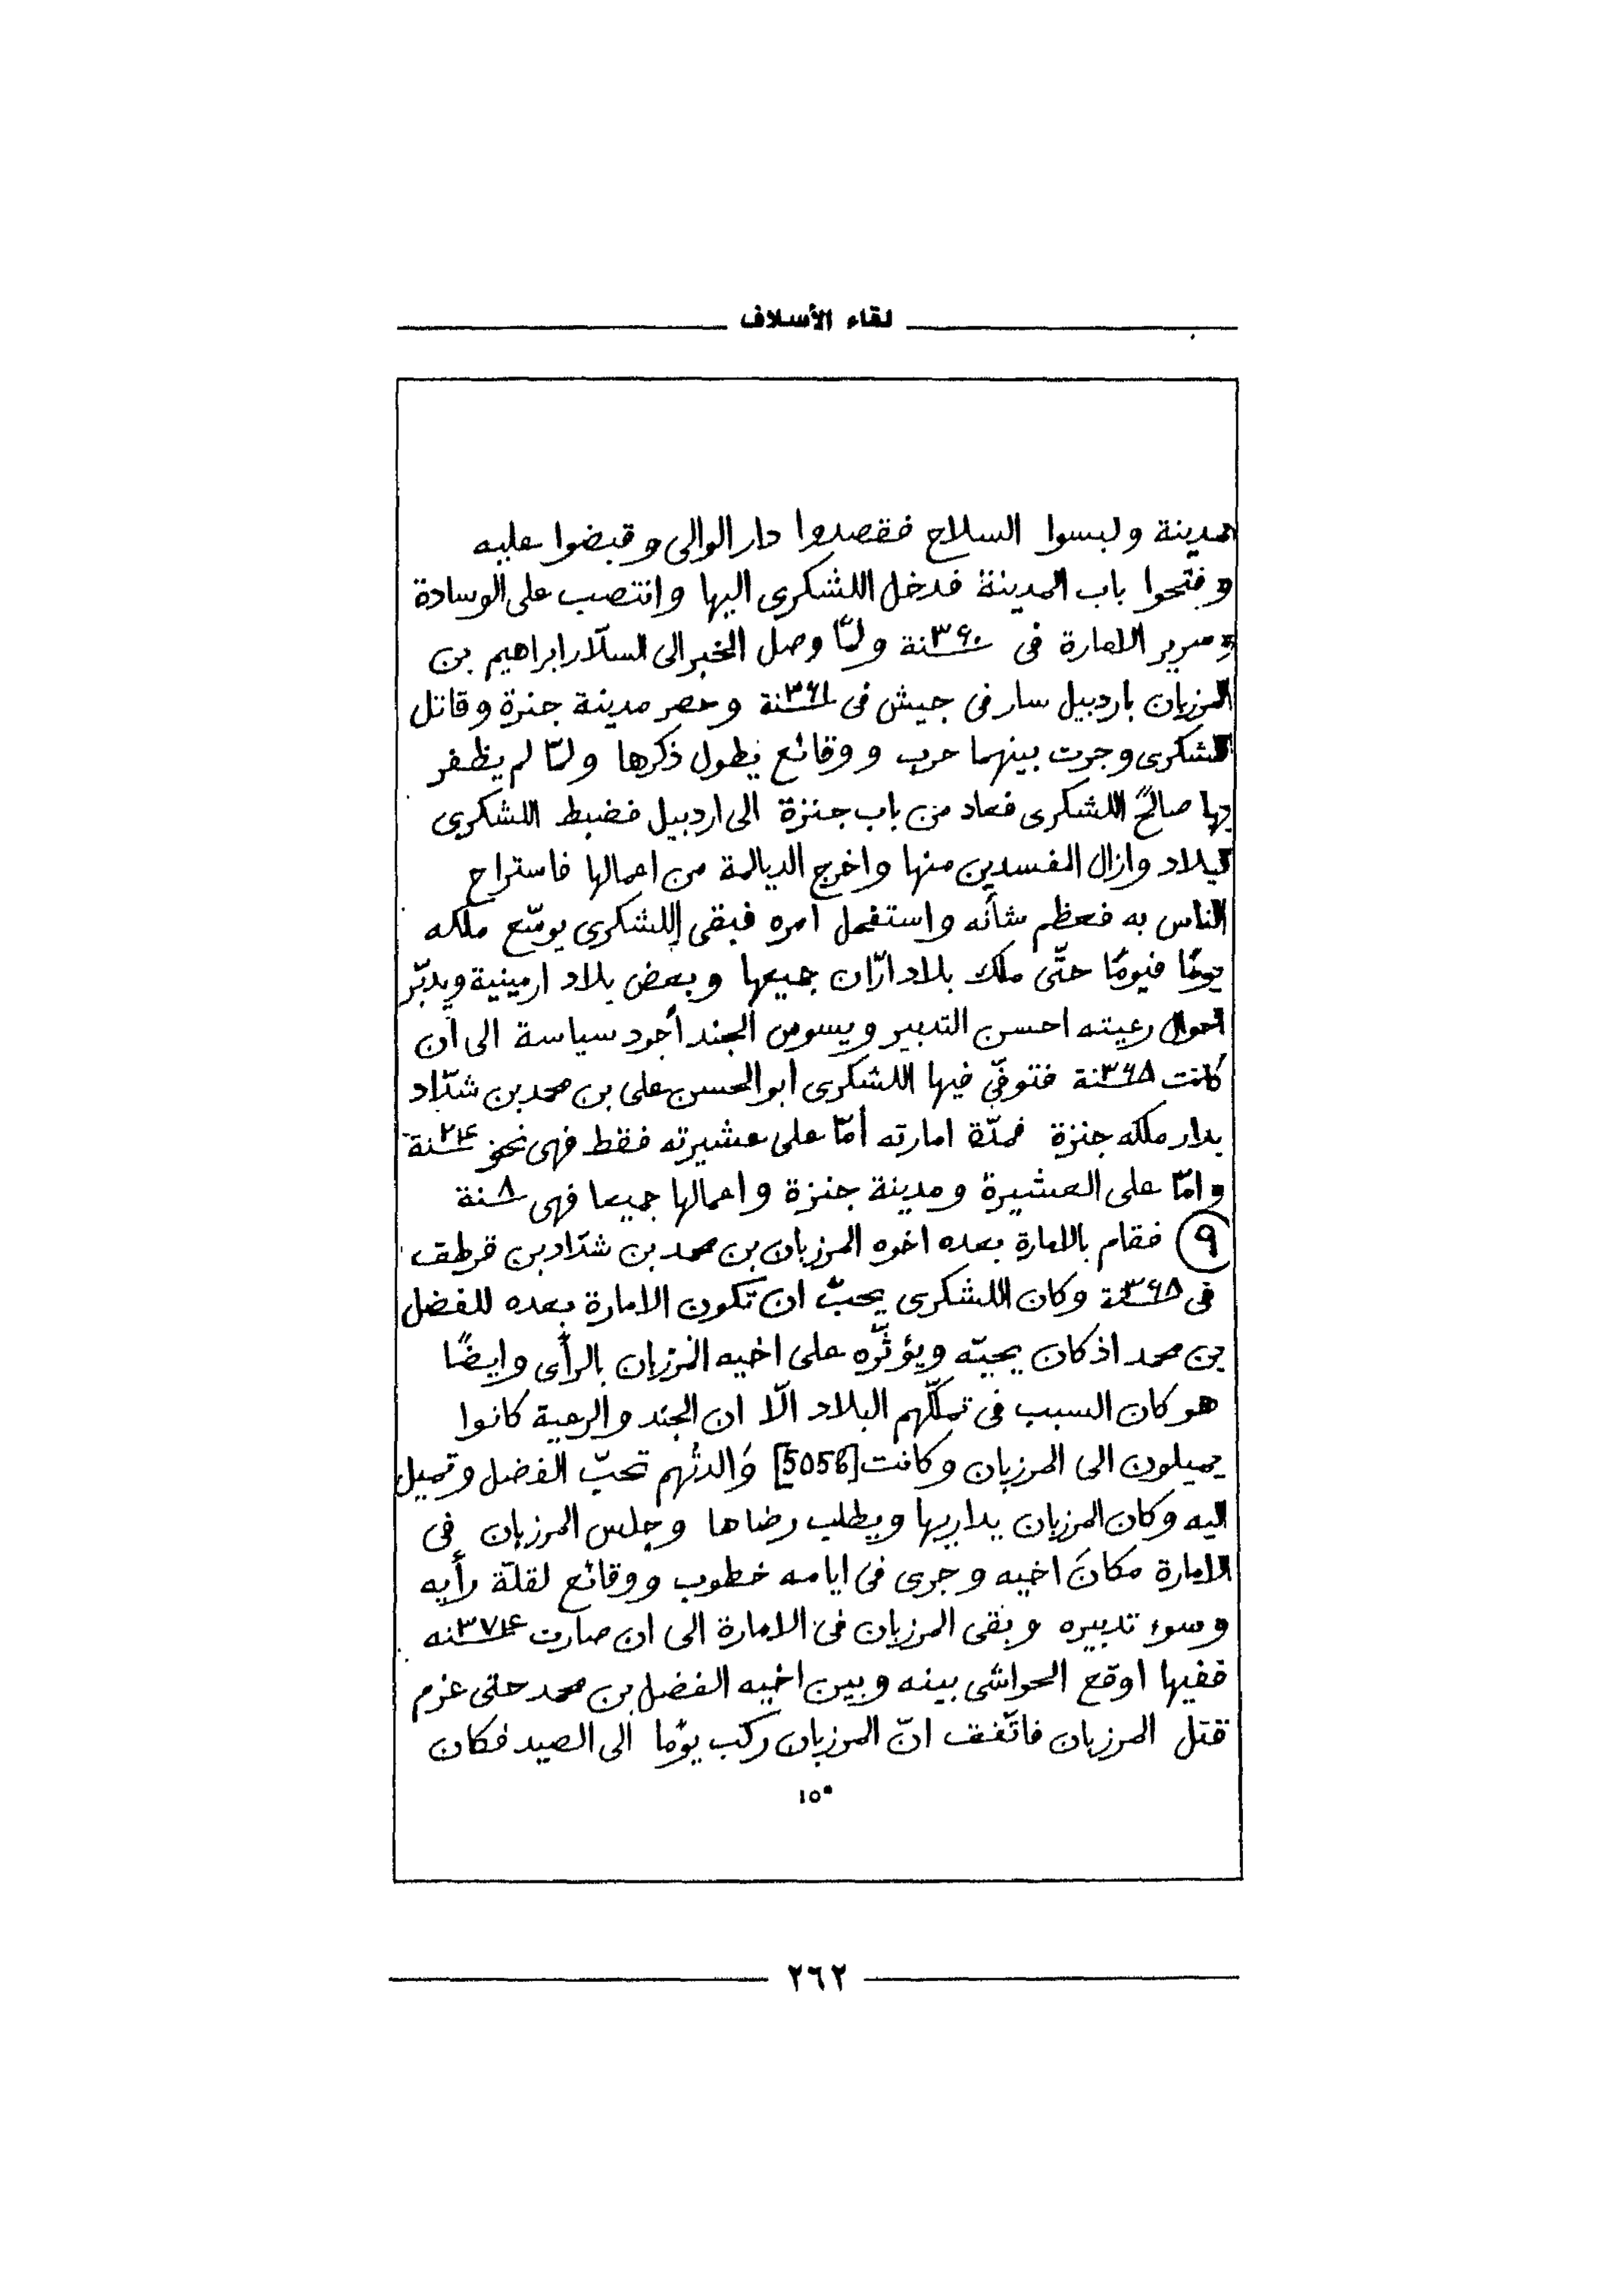 لقاء الأسلاف
مدينة ولبسوا السلاح فقصدوا دار الوالى وقبضوا عليه
وفتحوا باب المدينة فدخل اللشكرى اليها وانتصب على الوسادة
وسرير الامارة فى سنة ٣٦٠ ولمّا وصل الخبر الى السلّار ابراهيم بن
المرزبان باردبيل سار فى جيش فى سنة ٣٦١ وحصر مدينة جنزة وقاتل
لشكرى وجرت بينهما حرب ووقائع يطول ذكرها ولمّا لم يظفر
بها صالح اللشكرى فعاد من باب جنزة الى اردبيل فضبط اللشكرى
لبلاد وازال المفسدين منها واخرج الديالمة من اعمالها فاستراح
الناس به فعظم شأنه واستفحل امره فبقى اللشكرى يوسّع ملكه
يومًا فيومًا حتّى ملك بلاد ارّان جميعها وبعض بلاد ارمينية ويدبّر
احوال رعيته احسن التدبير ويسوس الجند أجود سياسة الى أن
كانت سنة ٣٦٨ فتوفّى فيها اللشكرى أبو الحسن على بن محمد بن شدّاد
بدار ملكه جنزة فمدّة امارته أمّا على عشيرته فقط فهى نحو سنة ٢٤
وامّا على العشيرة ومدينة جنزة واعمالها جميعا فهى سنة ٨
(٩) فقام بالامارة بعده اخوه المرزبان بن محمد بن شدّاد بن قرطق
فى سنة ٣٦٨ وكان اللشكرى يحبّ ان تكون الامارة بعده للفضل
بن محمد اذ كان يحبّه ويؤثّره على اخيه المرزبان بالرأى وايضًا
هو كان السبب فى تملّكهم البلاد الّا ان الجند والرعية كانوا
يميلون الى المرزبان وكانت [505b] والدتُهم تحبّ الفضل وتميل
اليه وكان المرزبان يداريها ويطلب رضاها وجلس المرزبان فى
الامارة مكانَ اخيه وجرى فى ايامه خطوب ووقائع لقلّة رأيه
وسوء تدبيره وبقى المرزبان فى الامارة الى ان صارت سنه ٣٧٤
ففيها اوقع الحواشى بينه وبين اخيه الفضل بن محمد حتى عزم
قتل المرزبان فاتّفق انّ المرزبان ركب يومًا الى الصيد فكان
١٥*
٢٦٢